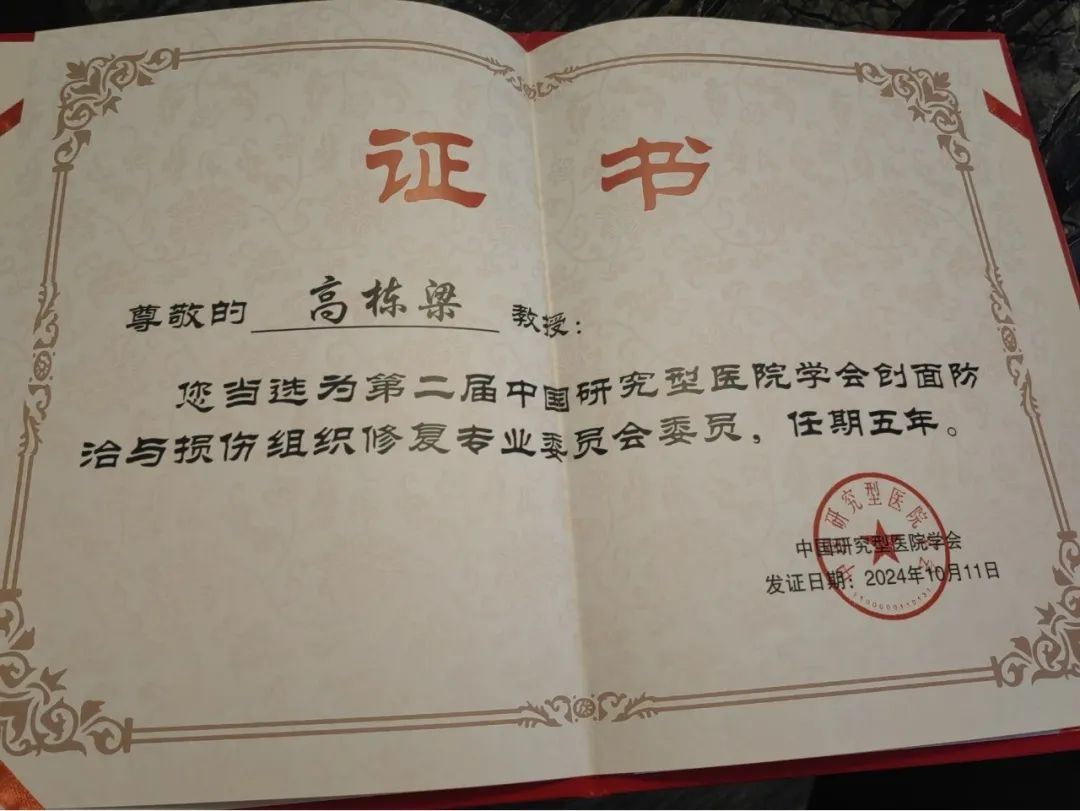 证书
尊敬的 高栋梁 教授:
您当选为第二届中国研究型医院学会创面防
治与损伤组织修复专业委员会委员,任期五年。
研究型医院
中国研究型医院学会
发证日期:2024年10月11日